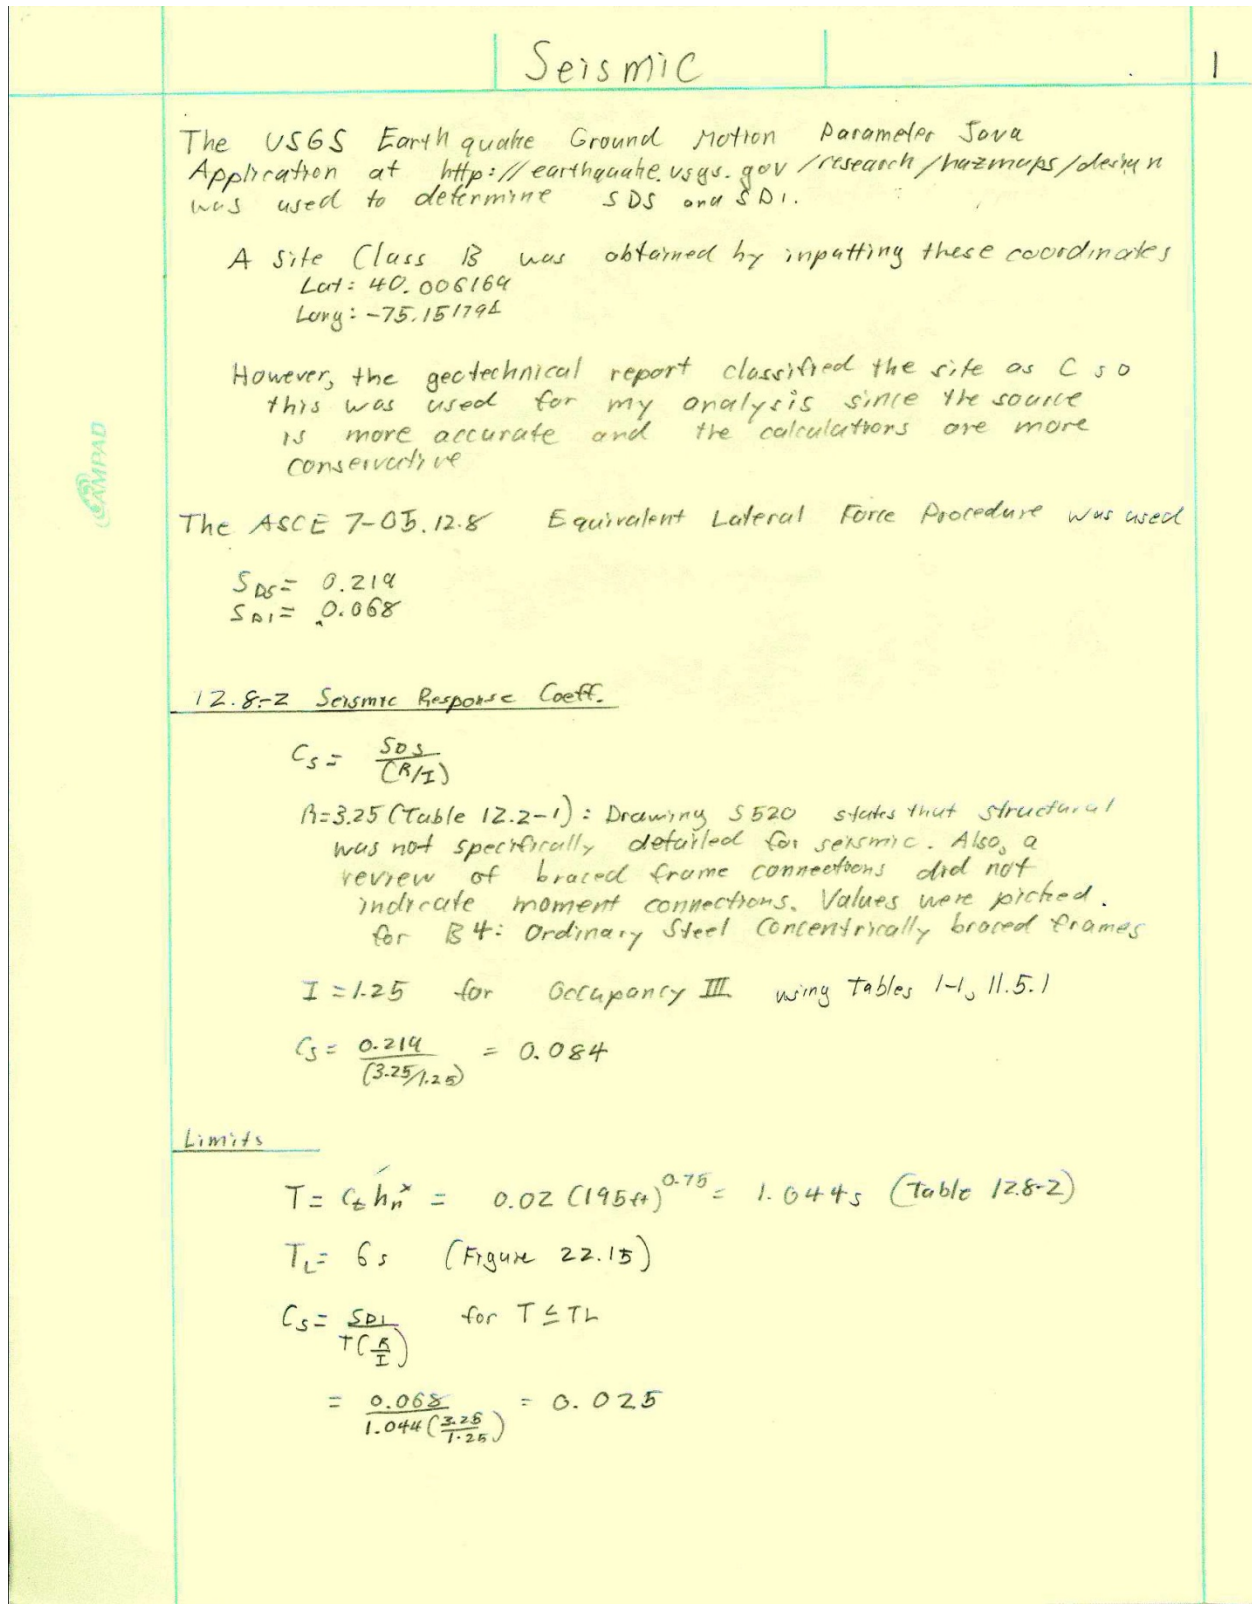 Seismic
1
The USGS Earthquake Ground Motion Parameter Java
Application at http://earthquake.usgs.gov/research/hazmaps/design
was used to determine SDS and SD1.
A Site Class B was obtained by inputting these coordinates
Lat: 40.006169
Long: -75.151794
However, the geotechnical report classified the site as C so
this was used for my analysis since the source
is more accurate and the calculations are more
conservative
CAMPAD
The ASCE 7-05.12.8 Equivalent Lateral Force Procedure was used
SDS = 0.219
SD1 = 0.068
12.8-2 Seismic Response Coeff.
Cs = SDS / (R/I)
R=3.25 (Table 12.2-1): Drawing S520 states that structural
was not specifically detailed for seismic. Also, a
review of braced frame connections did not
indicate moment connections. Values were picked.
for B4: Ordinary Steel Concentrically braced frames
I = 1.25 for Occupancy III using Tables 1-1, 11.5.1
Cs = 0.219 / (3.25/1.25) = 0.084
Limits
T = Ct hn^x = 0.02 (195ft)^0.75 = 1.044s (Table 12.8-2)
TL = 6s (Figure 22.15)
Cs = SD1 / T(R/I) for T ≤ TL
= 0.068 / 1.044(3.25/1.25) = 0.025